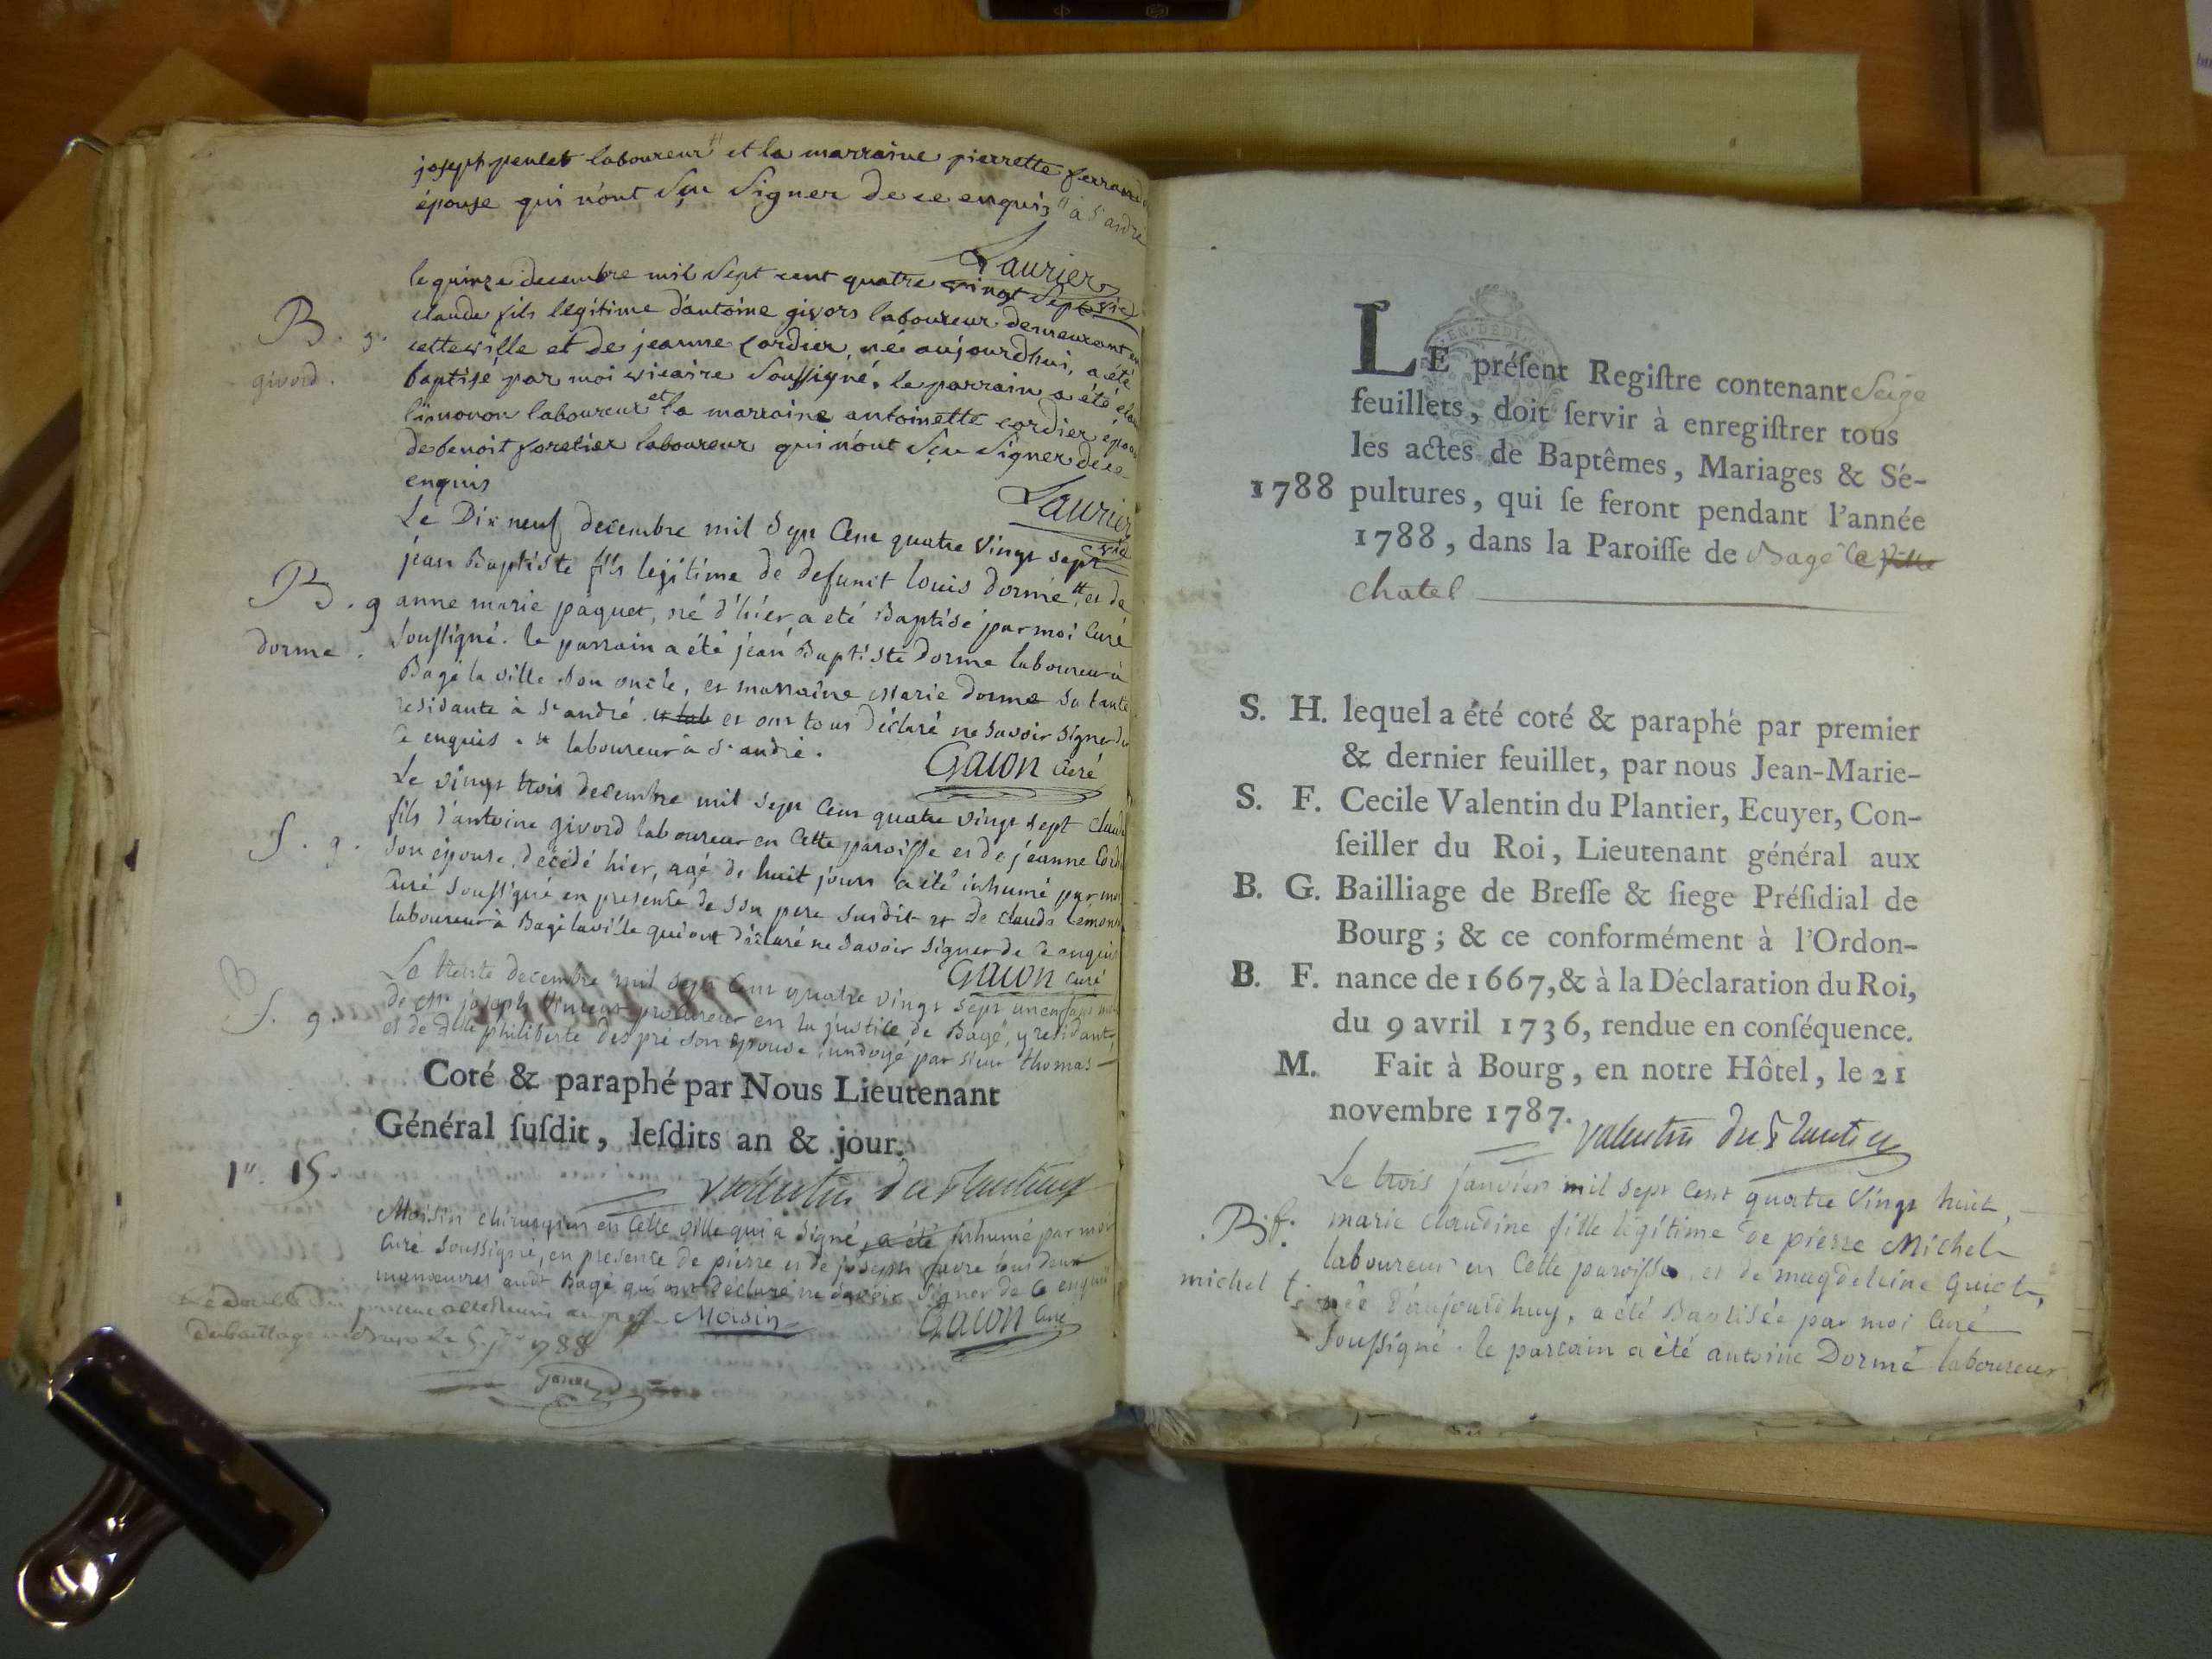 joseph penlet laboureur # et la marraine pierrette ferrand
épouse qui n'ont sçu signer de ce enquis # à st andré
Laurier
vic
le quinze decembre mil sept cent quatre vingt sept
B. g.
givord.
claude fils legitime d'antoine givors laboureur demeurant en
cette ville et de jeanne cordier, né aujourdhui, a été
baptisé par moi vicaire soussigné. le parrain a été
laboureur et la marraine antoinette cordier
de benoit foretier laboureur qui n'ont sçu signer de ce
enquis
Laurier
vic
Le Dix neuf decembre mil sept Cent quatre vingt sept
B. g
dorme.
jean Baptiste fils legitime de defunit louis dormé # et de
anne marie paquet, né d'hiér, a eté Baptisé par moi Curé
soussigné. le parrain a été jean Baptiste dorme laboureur à
Bagé la ville son oncle, et marraine marie dorme sa tante
residante à st andré. et lab et ont tous déclaré ne savoir signer de
ce enquis. # laboureur à st andré.
Gacon curé
Le vingt trois decembre mil sept Cent quatre vingt sept
S. g.
fils d'antoine givord laboureur en Cette paroisse et de jeanne
son épouse, decédé hier, agé de huit jours a été inhumé par
Curé soussigné en presence de son pere susdit et de claude
laboureur à Bagé laville qui ont déclaré ne savoir signer de Ce
Gacon curé
Le trente decembre mil sept Cent quatre vingt sept un enfant
S. g.
de joseph Vincent procureur en la justice de Bagé, y residant,
et de dlle philiberte Despré son épouse, undoyé par sieur thomas
Coté & paraphé par Nous Lieutenant
Général ſuſdit, leſdits an & jour.
15.
valentin du Plantier
Moisin chirurgien en Cette ville qui a signé, a été inhumé par moi
Curé soussigné, en presence de pierre et de joseph favre tous deux
manœuvres audt Bagé qui ont déclaré ne savoir signer de Ce enquis
Moisin
Gacon curé
1788
LE préſent Regiſtre contenant Seize
feuillets, doit ſervir à enregiſtrer tous
les actes de Baptêmes, Mariages & Sé-
1788 pultures, qui ſe feront pendant l'année
1788, dans la Paroiſſe de Bagé le ville
chatel
S. H. lequel a été coté & paraphé par premier
& dernier feuillet, par nous Jean-Marie-
S. F. Cecile Valentin du Plantier, Ecuyer, Con-
ſeiller du Roi, Lieutenant général aux
B. G. Bailliage de Breſſe & ſiege Préſidial de
Bourg; & ce conformément à l'Ordon-
B. F. nance de 1667, & à la Déclaration du Roi,
du 9 avril 1736, rendue en conſéquence.
M. Fait à Bourg, en notre Hôtel, le 21
novembre 1787.
valentin du Plantier
Le trois janvier mil sept Cent quatre vingt huit,
B. f.
marie claudine fille légitime de pierre Michel
laboureur en Cette paroisse, et de magdeleine Guiot,
michel f.
née d'aujourdhuy, a été Baptisée par moi Curé
soussigné. le parrain a été antoine Dormé laboureur